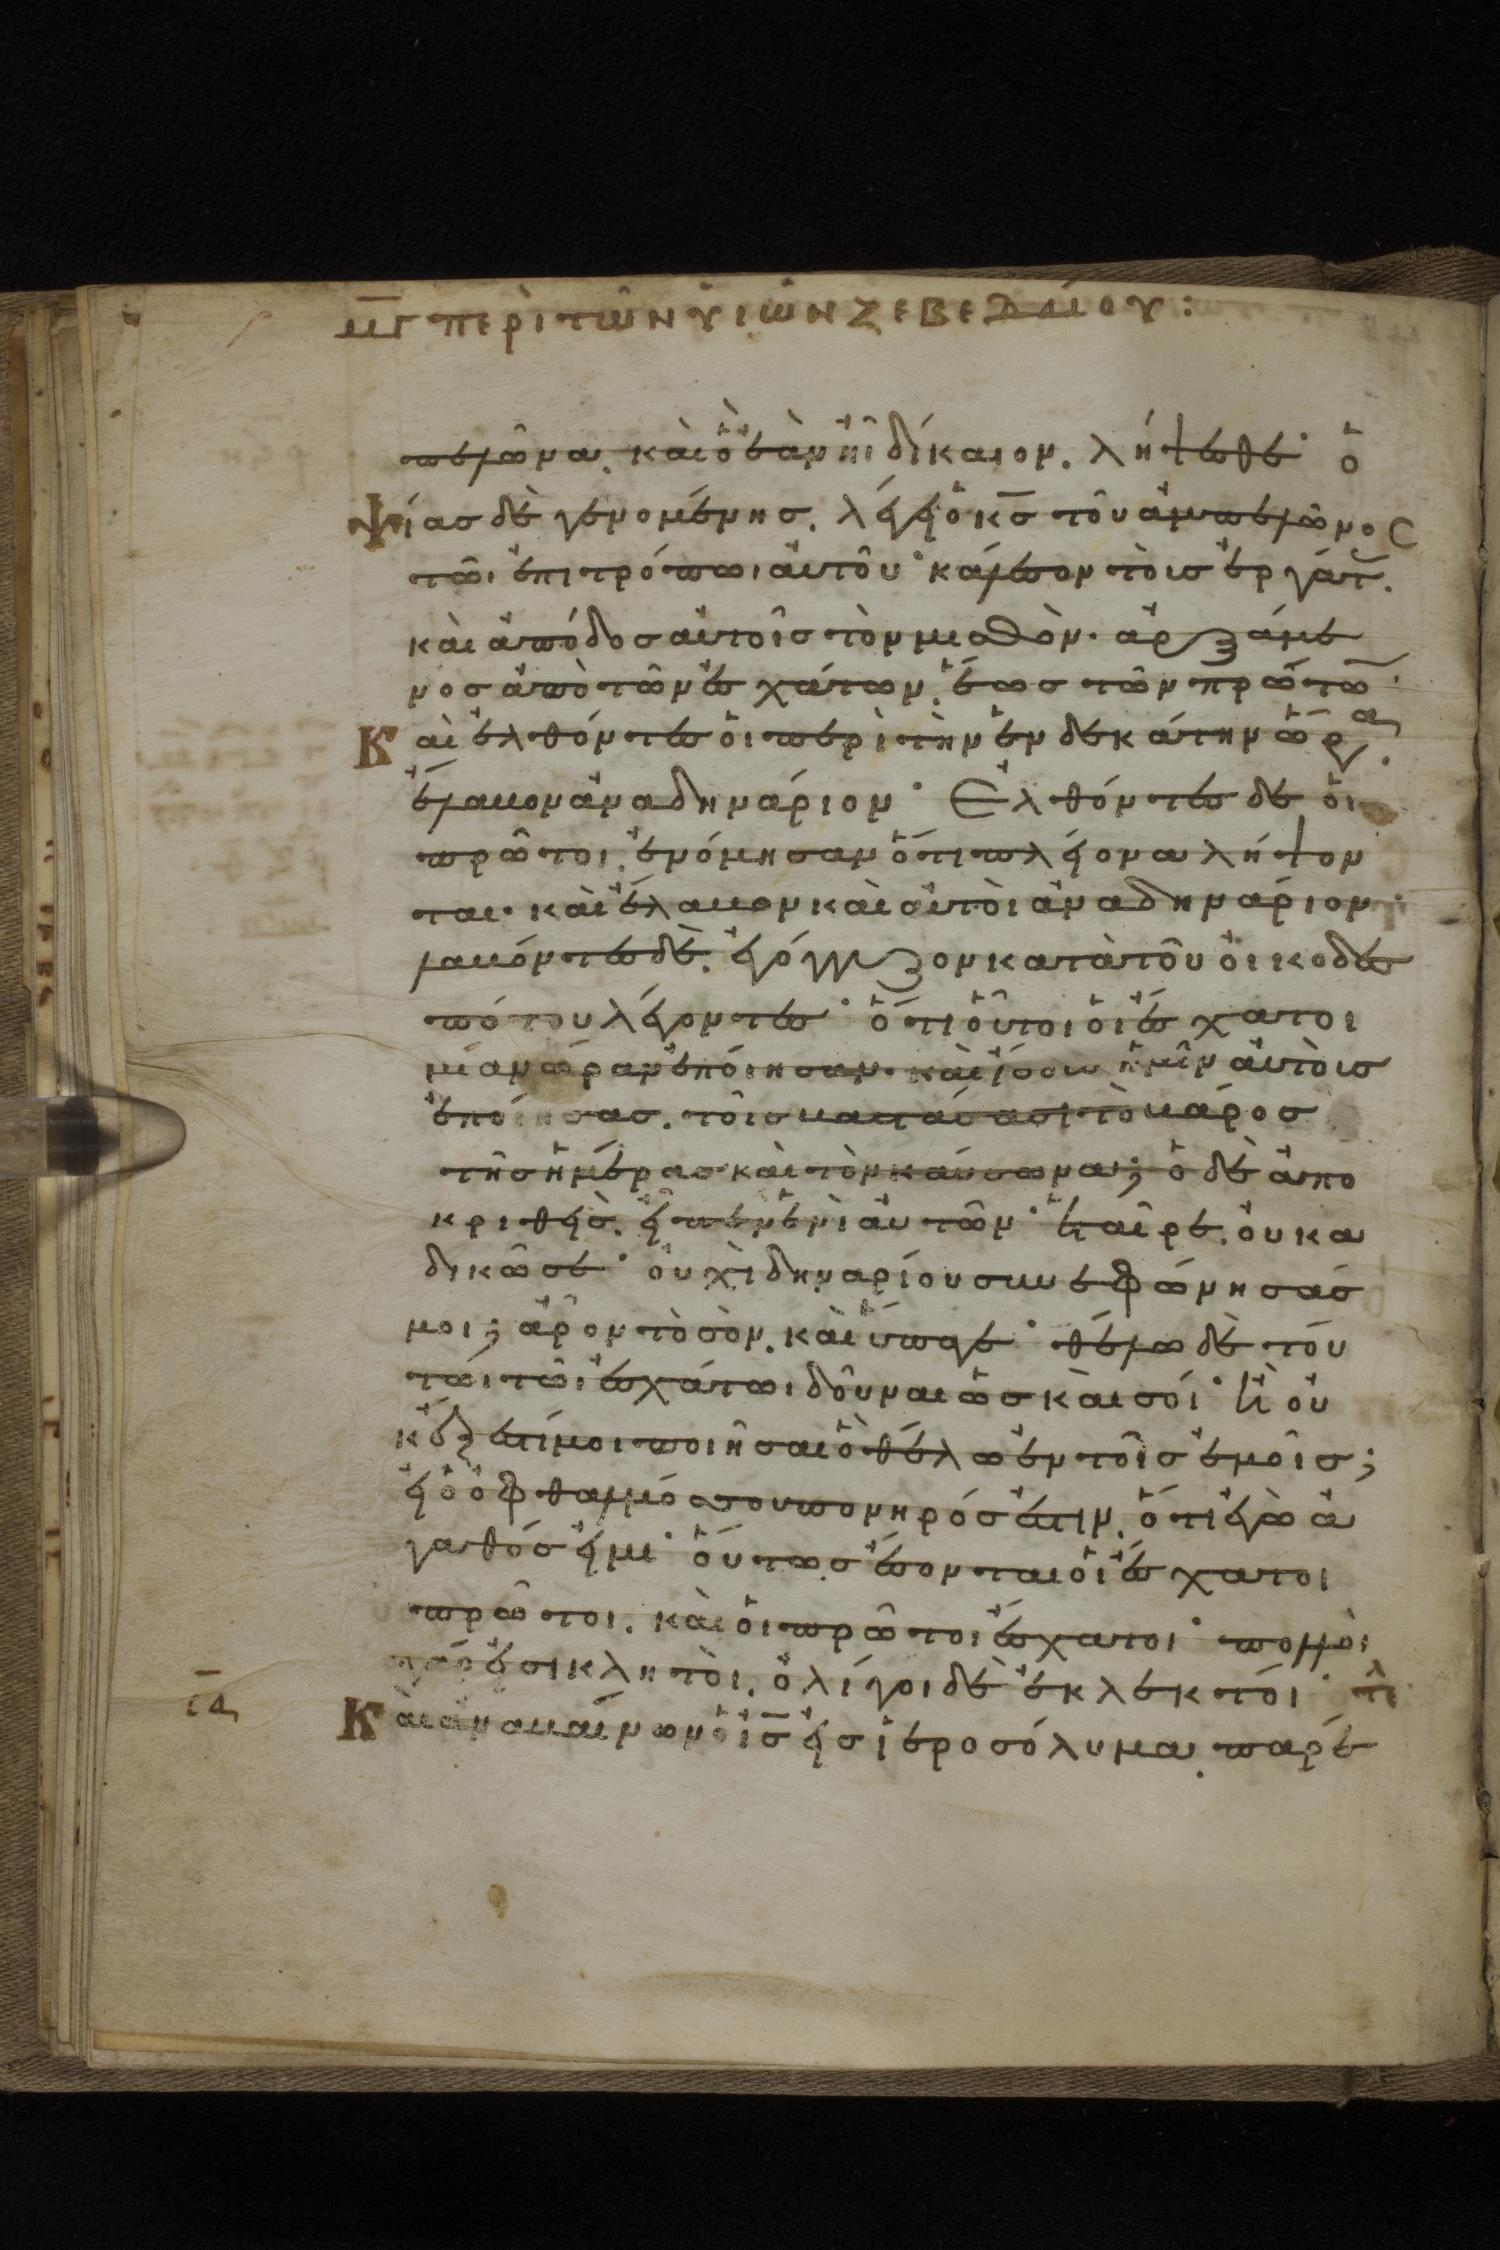 μγ περὶ τῶν υἱῶν ζεβεδαίου:
πελῶνα. καὶ ὃ ἐὰν ἦι δίκαιον. λήψεσθε· ὀ
ψίας δὲ γενομένης. λέγει ὁ κς τοῦ ἀμπελῶνος
τῶι ἐπιτρόπωι αὐτοῦ· κάλεσον τοὺς ἐργάτ.
καὶ ἀπόδος αὐτοῖς τὸν μισθὸν. ἀρξάμε
νος ἀπὸ τῶν ἐσχάτων. ἕως τῶν πρώτω
Καὶ ἐλθόντες οἱ περὶ τὴν ἑνδεκάτην ὥρα.
ἔλαβον ἀνα δηνάριον· Ἐλθόντες δὲ οἱ
πρῶτοι. ἐνόμησαν ὅτι πλείονα λήψον
ται. καὶ ἔλαβον καὶ αὐτοὶ ἀνα δηνάριον·
λαβόντες δὲ. ἐγόγγυζον κατὰ τοῦ οἰκοδεσ
πότου λέγοντες· ὅτι οὗτοι οἱ ἔσχατοι
μίαν ὥραν ἐποίησαν. καὶ ἴσους ἡμῖν αὐτοὺς
ἐποίησας. τοῖς βαστάσασι τὸ βάρος
τῆς ἡμέρας καὶ τὸν καύσωνα; ὁ δὲ ἀπο
κριθεὶς. εἶπεν ἑνὶ αὐτῶν· ἑταῖρε. οὐκ α
δικῶ σε· οὐχὶ δηναρίου συνεφώνησάσ
μοι; ἆρον τὸ σὸν. καὶ ὕπαγε· θέλω δὲ τού
τωι τῶι ἐσχάτωι δοῦναι ὡς καὶ σοί· ἢ οὐ
κ ἔξεστί μοι ποιῆσαι ὃ θέλω ἐν τοῖς ἐμοῖς;
εἰ ὁ ὀφθαλμός σου πονηρός ἐστιν. ὅτι ἐγὼ ἀ
γαθός εἰμι· οὕτως ἔσονται οἱ ἔσχατοι
πρῶτοι. καὶ οἱ πρῶτοι ἔσχατοι· πολλοὶ
γάρ εἰσι κλητοὶ. ὀλίγοι δὲ ἐκλεκτοί· τλ
ς̄δ
Καὶ ἀναβαίνων ὁ ις εἰς ἱεροσόλυμα. παρέ